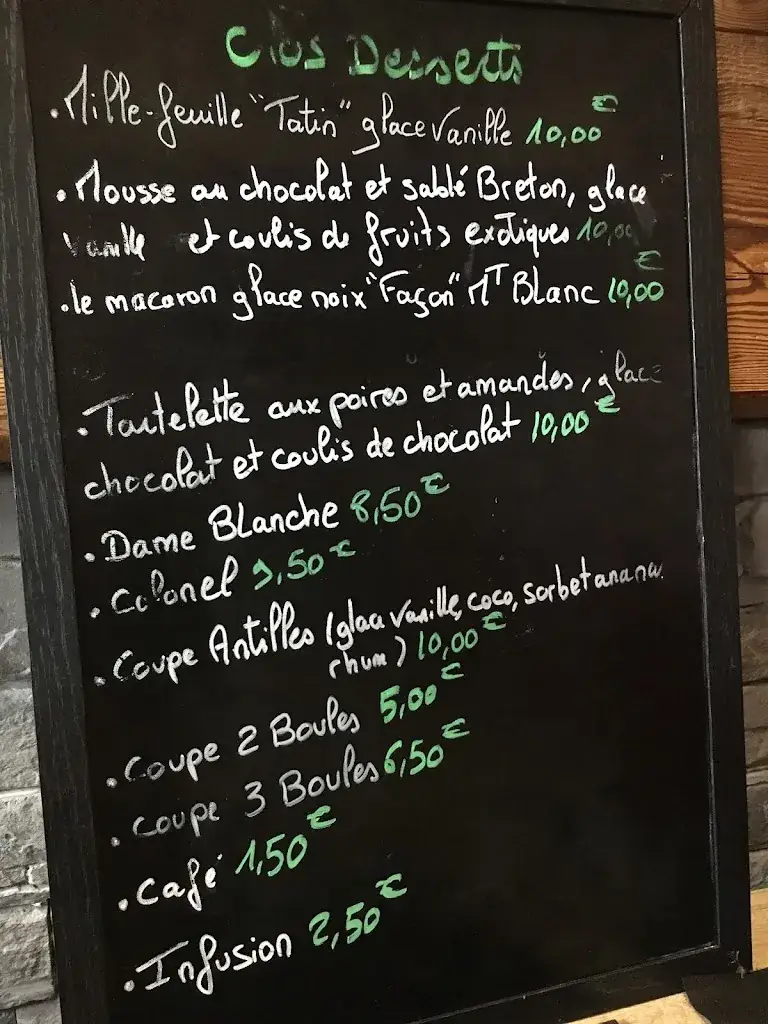 Clos Desserts
. Mille-feuille "Tatin" glace Vanille 10,00€
. Mousse au chocolat et sablé Breton, glace
vanille et coulis de fruits exotiques 10,00
€
. le macaron glace noix "Façon" MT Blanc 10,00
. Tartelette aux poires et amandes, glace
chocolat et coulis de chocolat 10,00€
. Dame Blanche 8,50€
. Colonel 9,50€
. Coupe Antilles (glace vanille, coco, sorbet ananas
rhum) 10,00€
. Coupe 2 Boules 5,00€
. Coupe 3 Boules 6,50€
. Café 1,50€
. Infusion 2,50€